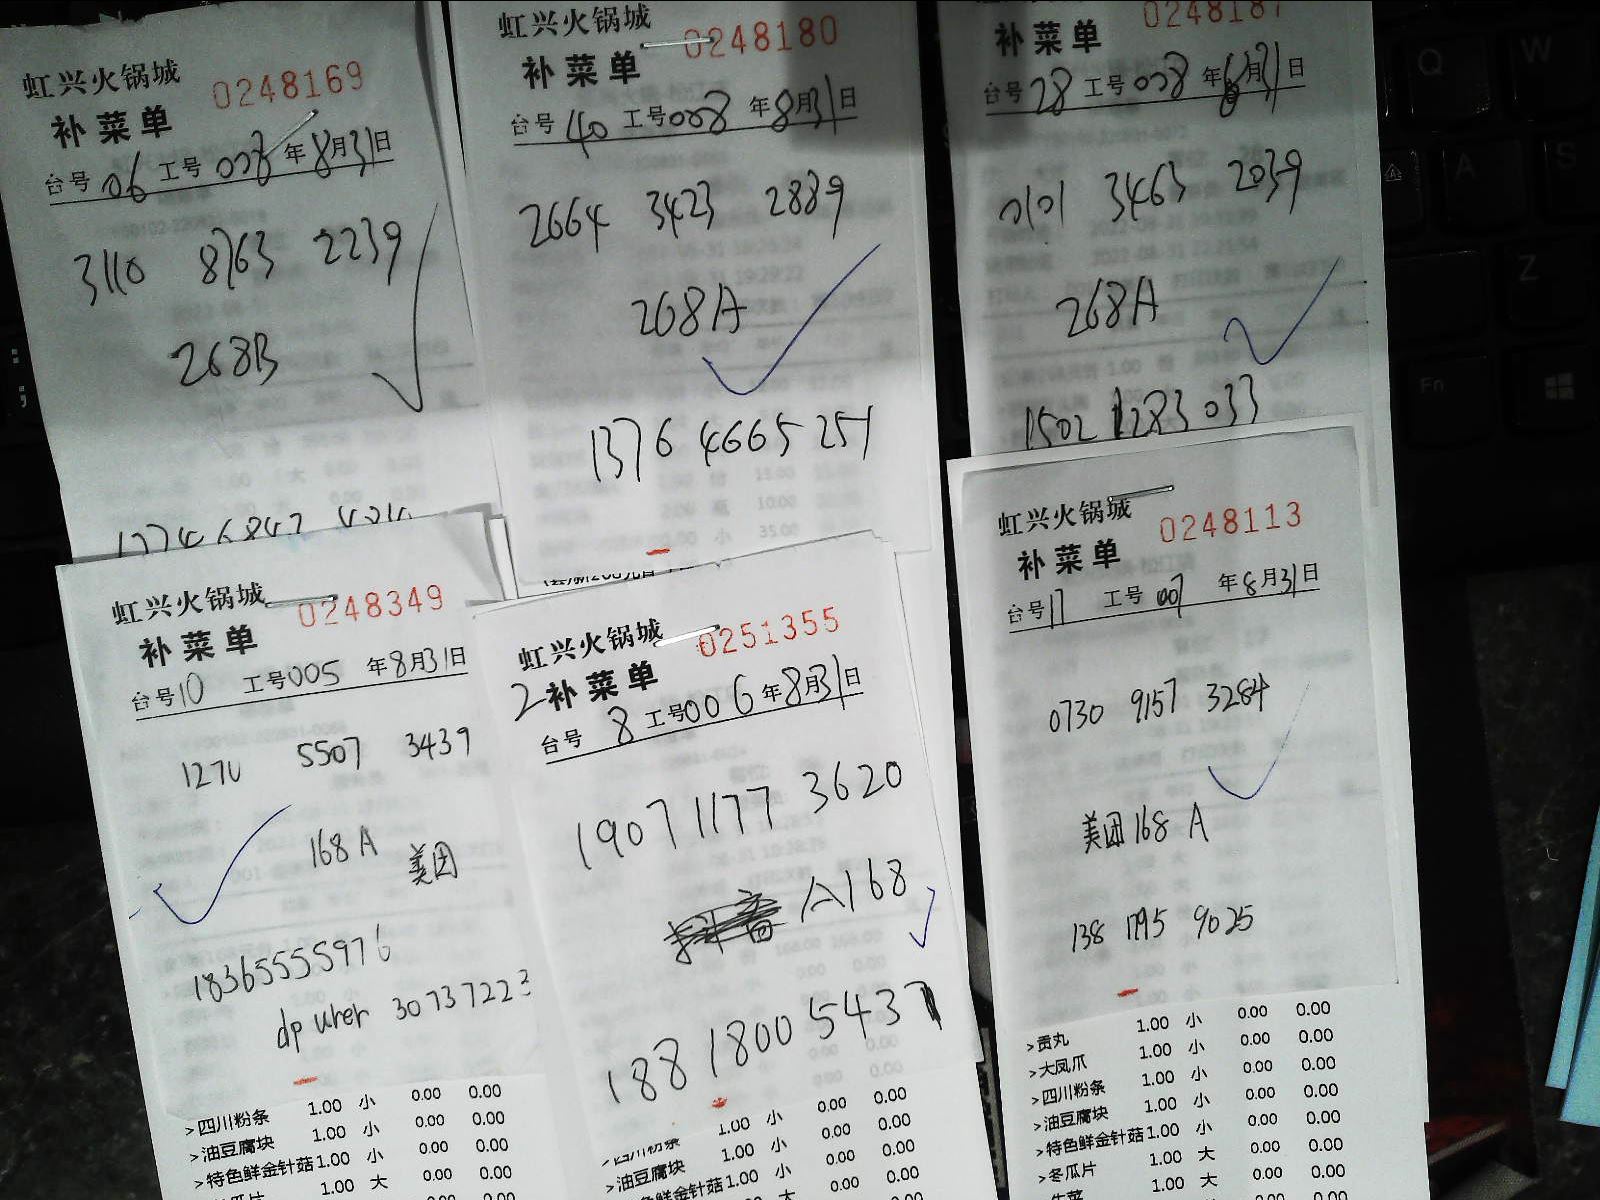 虹兴火锅城
补菜单 0248169
台号 06 工号 008 年 8月31日
3110 8763 2239
268B
虹兴火锅城
补菜单 0248180
台号 40 工号 008 年 8月31日
2664 3423 2889
268A
1376 4665 251
补菜单 0248187
台号 28 工号 008 年 8月31日
0101 3463 2039
268A
1502 1283 033
虹兴火锅城
补菜单 0248349
台号 10 工号 005 年 8月31日
1270 5507 3439
168A 美团
18365555976
dp urer 30737223
>四川粉条 1.00 小 0.00 0.00
>油豆腐块 1.00 小 0.00 0.00
>特色鲜金针菇 1.00 小 0.00 0.00
瓜片 1.00 大 0.00 0.00
虹兴火锅城
2补菜单 0251355
台号 8 工号 006 年 8月31日
1907 1177 3620
A168
188 1800 5437
四川粉条 1.00 小 0.00 0.00
>油豆腐块 1.00 小 0.00 0.00
色鲜金针菇 1.00 小 0.00 0.00
虹兴火锅城
补菜单 0248113
台号 17 工号 007 年 8月31日
0730 9157 3284
美团168 A
138 1795 9025
>贡丸 1.00 小 0.00 0.00
>大凤爪 1.00 小 0.00 0.00
>四川粉条 1.00 小 0.00 0.00
>油豆腐块 1.00 小 0.00 0.00
>特色鲜金针菇 1.00 小 0.00 0.00
>冬瓜片 1.00 大 0.00 0.00
生菜 1.00 大 0.00 0.00
Q W
A S
Z
Fn